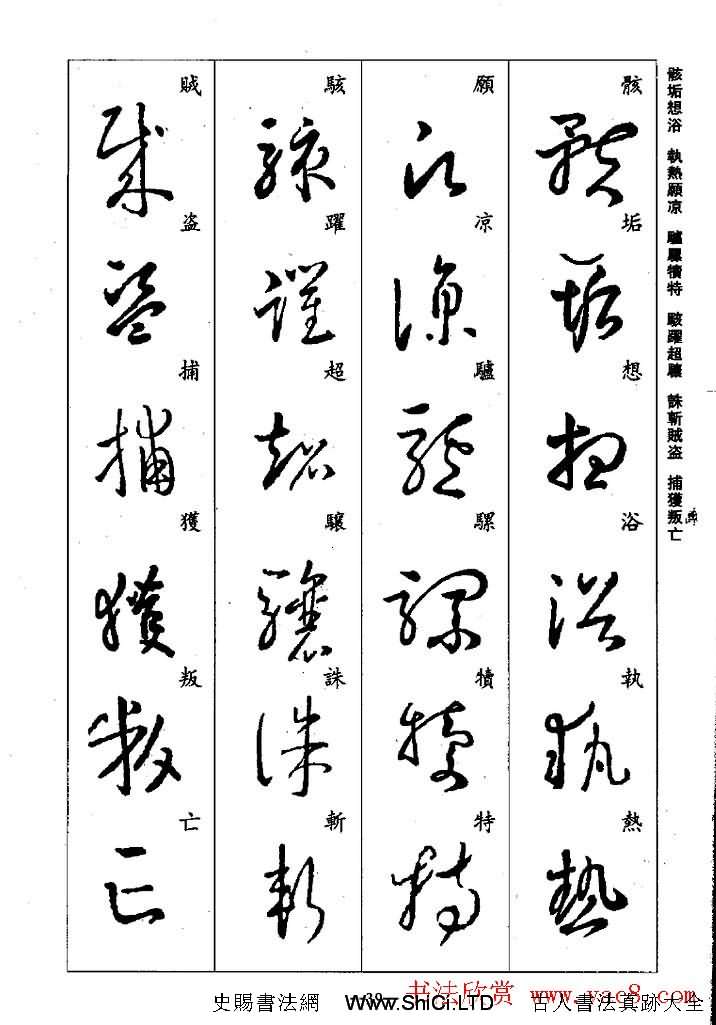 骸垢想浴 執熱願凉 驢騾犢特 駭躍超驤 誅斬賊盗 捕獲叛亡
骸
垢
想
浴
執
熱
願
凉
驢
騾
犢
特
駭
躍
超
驤
誅
斬
賊
盗
捕
獲
叛
亡
书法欣赏 www.yac8.com
史賜書法網 WWW.ShiCi.LTD 古人書法真跡大全